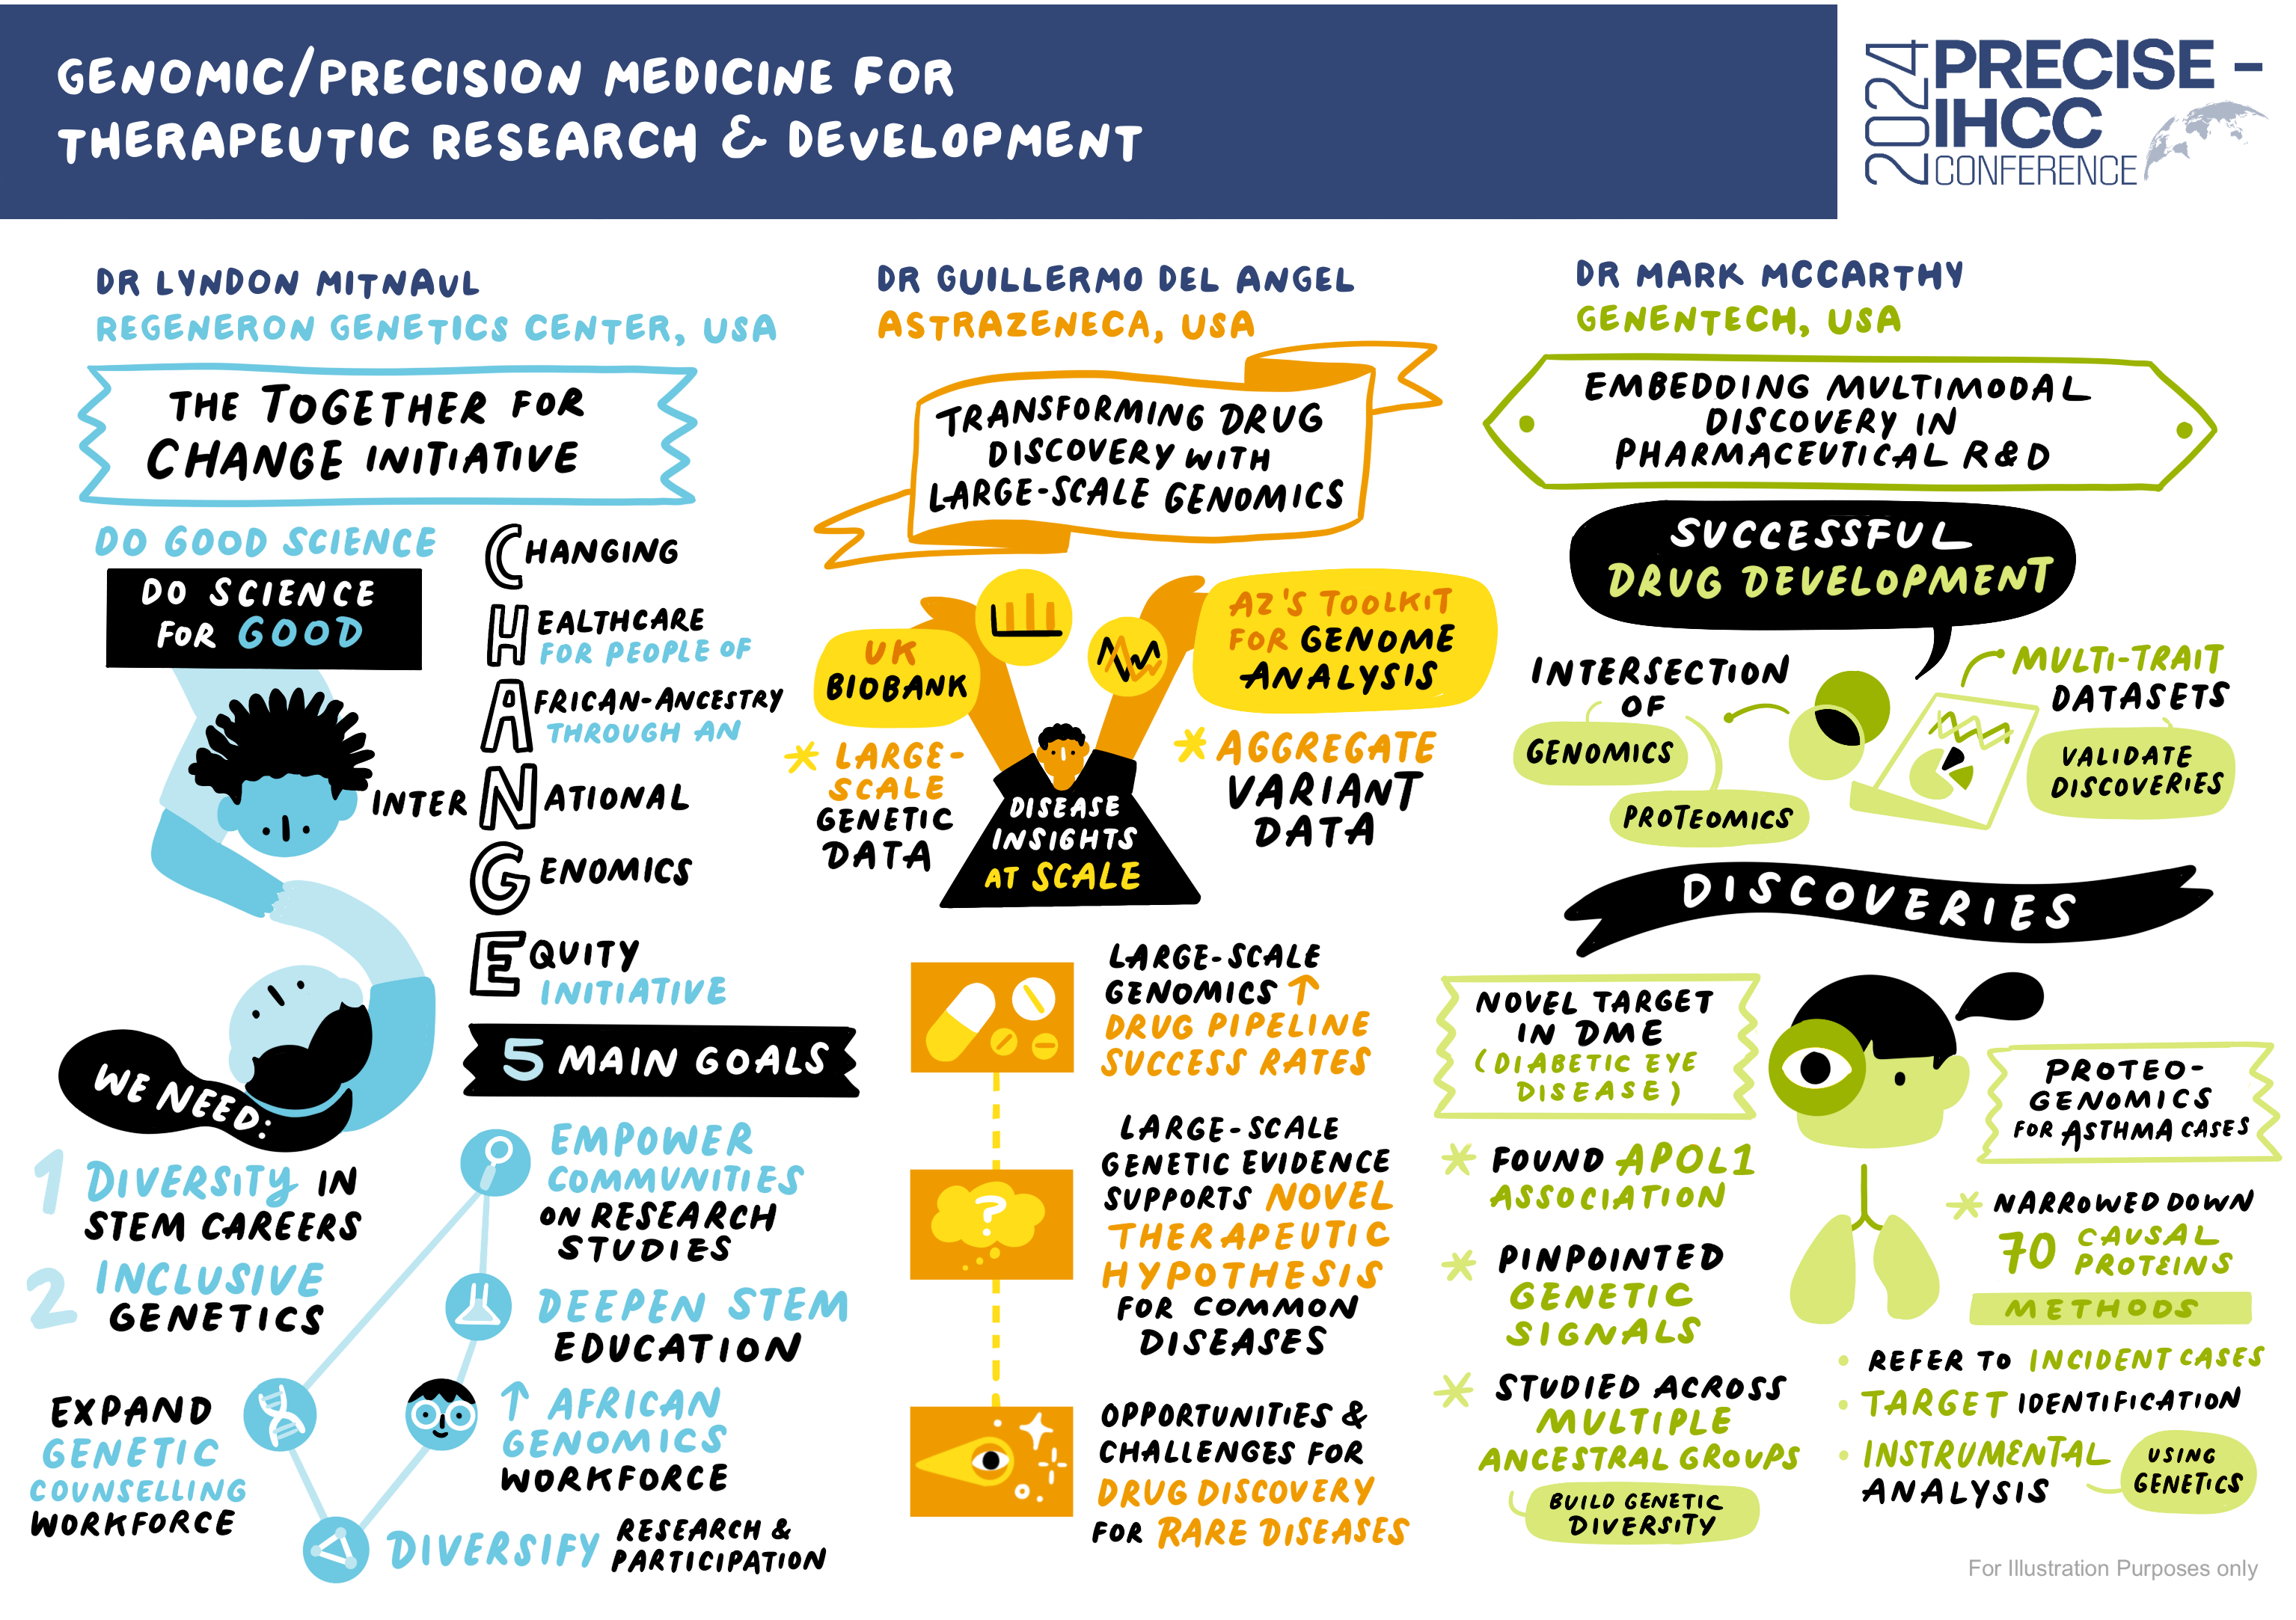 GENOMIC/PRECISION MEDICINE FOR
THERAPEUTIC RESEARCH & DEVELOPMENT
2024
PRECISE –
IHCC
CONFERENCE
DR LYNDON MITNAUL
REGENERON GENETICS CENTER, USA
THE TOGETHER FOR
CHANGE INITIATIVE
DO GOOD SCIENCE
DO SCIENCE
FOR GOOD
CHANGING
HEALTHCARE
FOR PEOPLE OF
AFRICAN-ANCESTRY
THROUGH AN
INTERNATIONAL
GENOMICS
EQUITY
INITIATIVE
WE NEED:
1 DIVERSITY IN
STEM CAREERS
2 INCLUSIVE
GENETICS
5 MAIN GOALS
EMPOWER
COMMUNITIES
ON RESEARCH
STUDIES
DEEPEN STEM
EDUCATION
↑ AFRICAN
GENOMICS
WORKFORCE
DIVERSIFY RESEARCH &
PARTICIPATION
EXPAND
GENETIC
COUNSELLING
WORKFORCE
DR GUILLERMO DEL ANGEL
ASTRAZENECA, USA
TRANSFORMING DRUG
DISCOVERY WITH
LARGE-SCALE GENOMICS
UK
BIOBANK
* LARGE-
SCALE
GENETIC
DATA
AZ'S TOOLKIT
FOR GENOME
ANALYSIS
* AGGREGATE
VARIANT
DATA
DISEASE
INSIGHTS
AT SCALE
LARGE-SCALE
GENOMICS ↑
DRUG PIPELINE
SUCCESS RATES
?
LARGE-SCALE
GENETIC EVIDENCE
SUPPORTS NOVEL
THERAPEUTIC
HYPOTHESIS
FOR COMMON
DISEASES
OPPORTUNITIES &
CHALLENGES FOR
DRUG DISCOVERY
FOR RARE DISEASES
DR MARK MCCARTHY
GENENTECH, USA
EMBEDDING MULTIMODAL
DISCOVERY IN
PHARMACEUTICAL R&D
SUCCESSFUL
DRUG DEVELOPMENT
INTERSECTION
OF
GENOMICS
PROTEOMICS
MULTI-TRAIT
DATASETS
VALIDATE
DISCOVERIES
DISCOVERIES
NOVEL TARGET
IN DME
(DIABETIC EYE
DISEASE)
* FOUND APOL1
ASSOCIATION
* PINPOINTED
GENETIC
SIGNALS
* STUDIED ACROSS
MULTIPLE
ANCESTRAL GROUPS
BUILD GENETIC
DIVERSITY
PROTEO-
GENOMICS
FOR ASTHMA CASES
* NARROWED DOWN
70 CAUSAL
PROTEINS
METHODS
• REFER TO INCIDENT CASES
• TARGET IDENTIFICATION
• INSTRUMENTAL
ANALYSIS
USING
GENETICS
For Illustration Purposes only